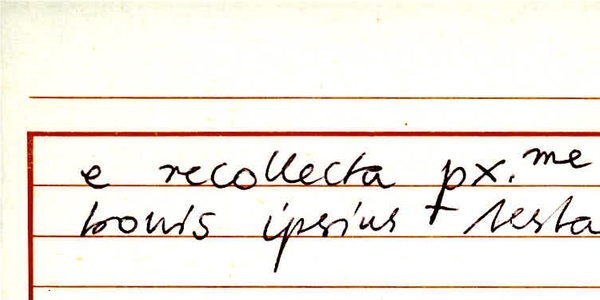 e recollecta px.me
bonis ipsius + testa